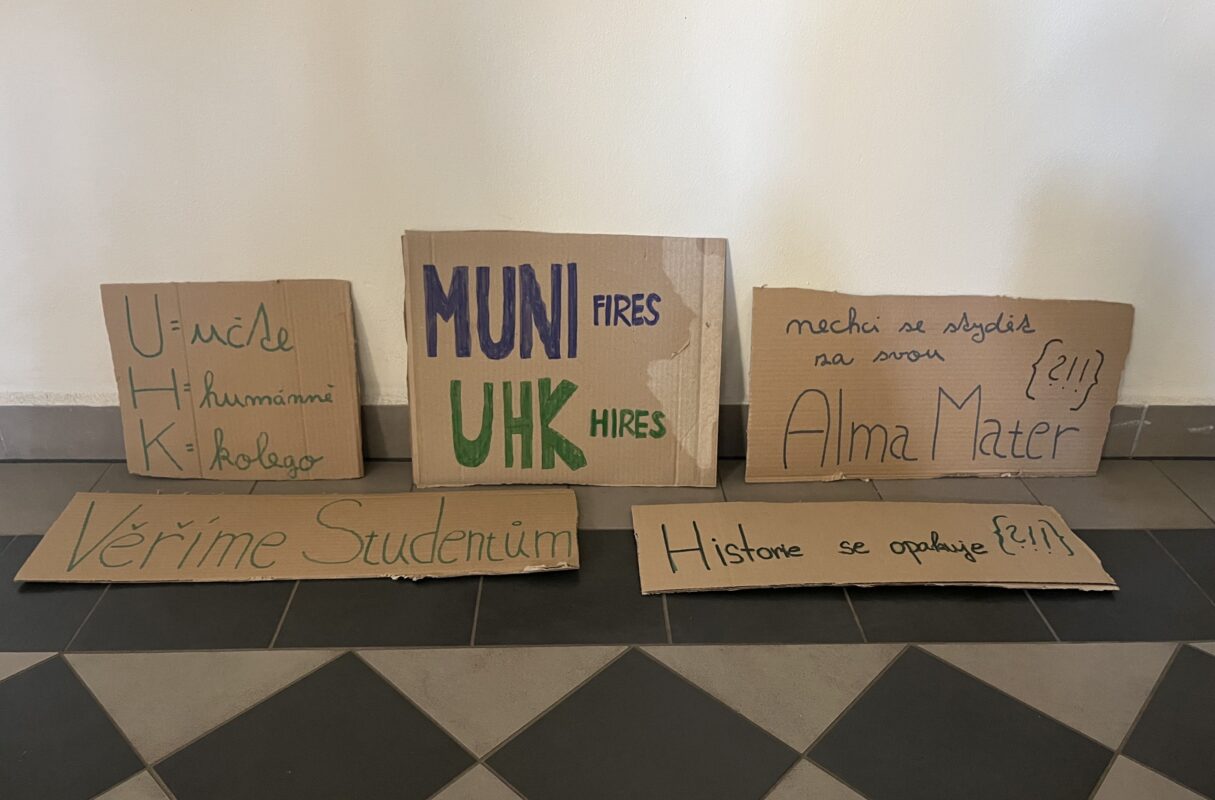 U = učíte
H = humánně
K = kolego
MUNI FIRES
UHK HIRES
nechci se stydět
za svou {?!!}
Alma Mater
Věříme Studentům
Historie se opakuje {?!!}